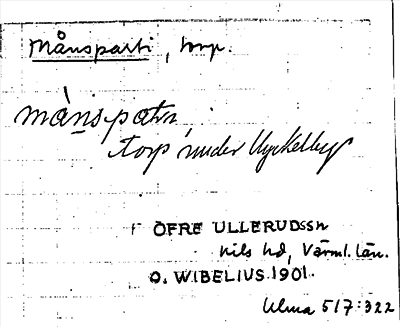 Månsparti, torp.
månspatrı
torp under Nyckelby
ÖFRE ULLERUDSSN
Kils hd, Värml. län.
O. WIBELIUS 1901.
Ulma 517:322